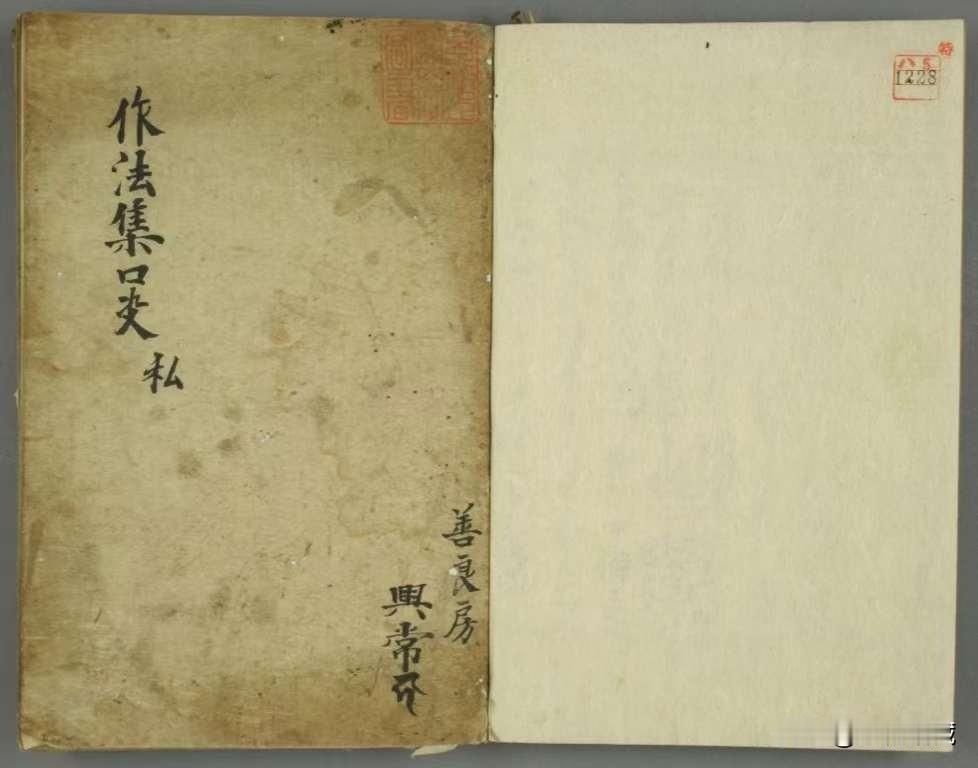 作法集口决
私
善良房
興常
特
八 5
1228